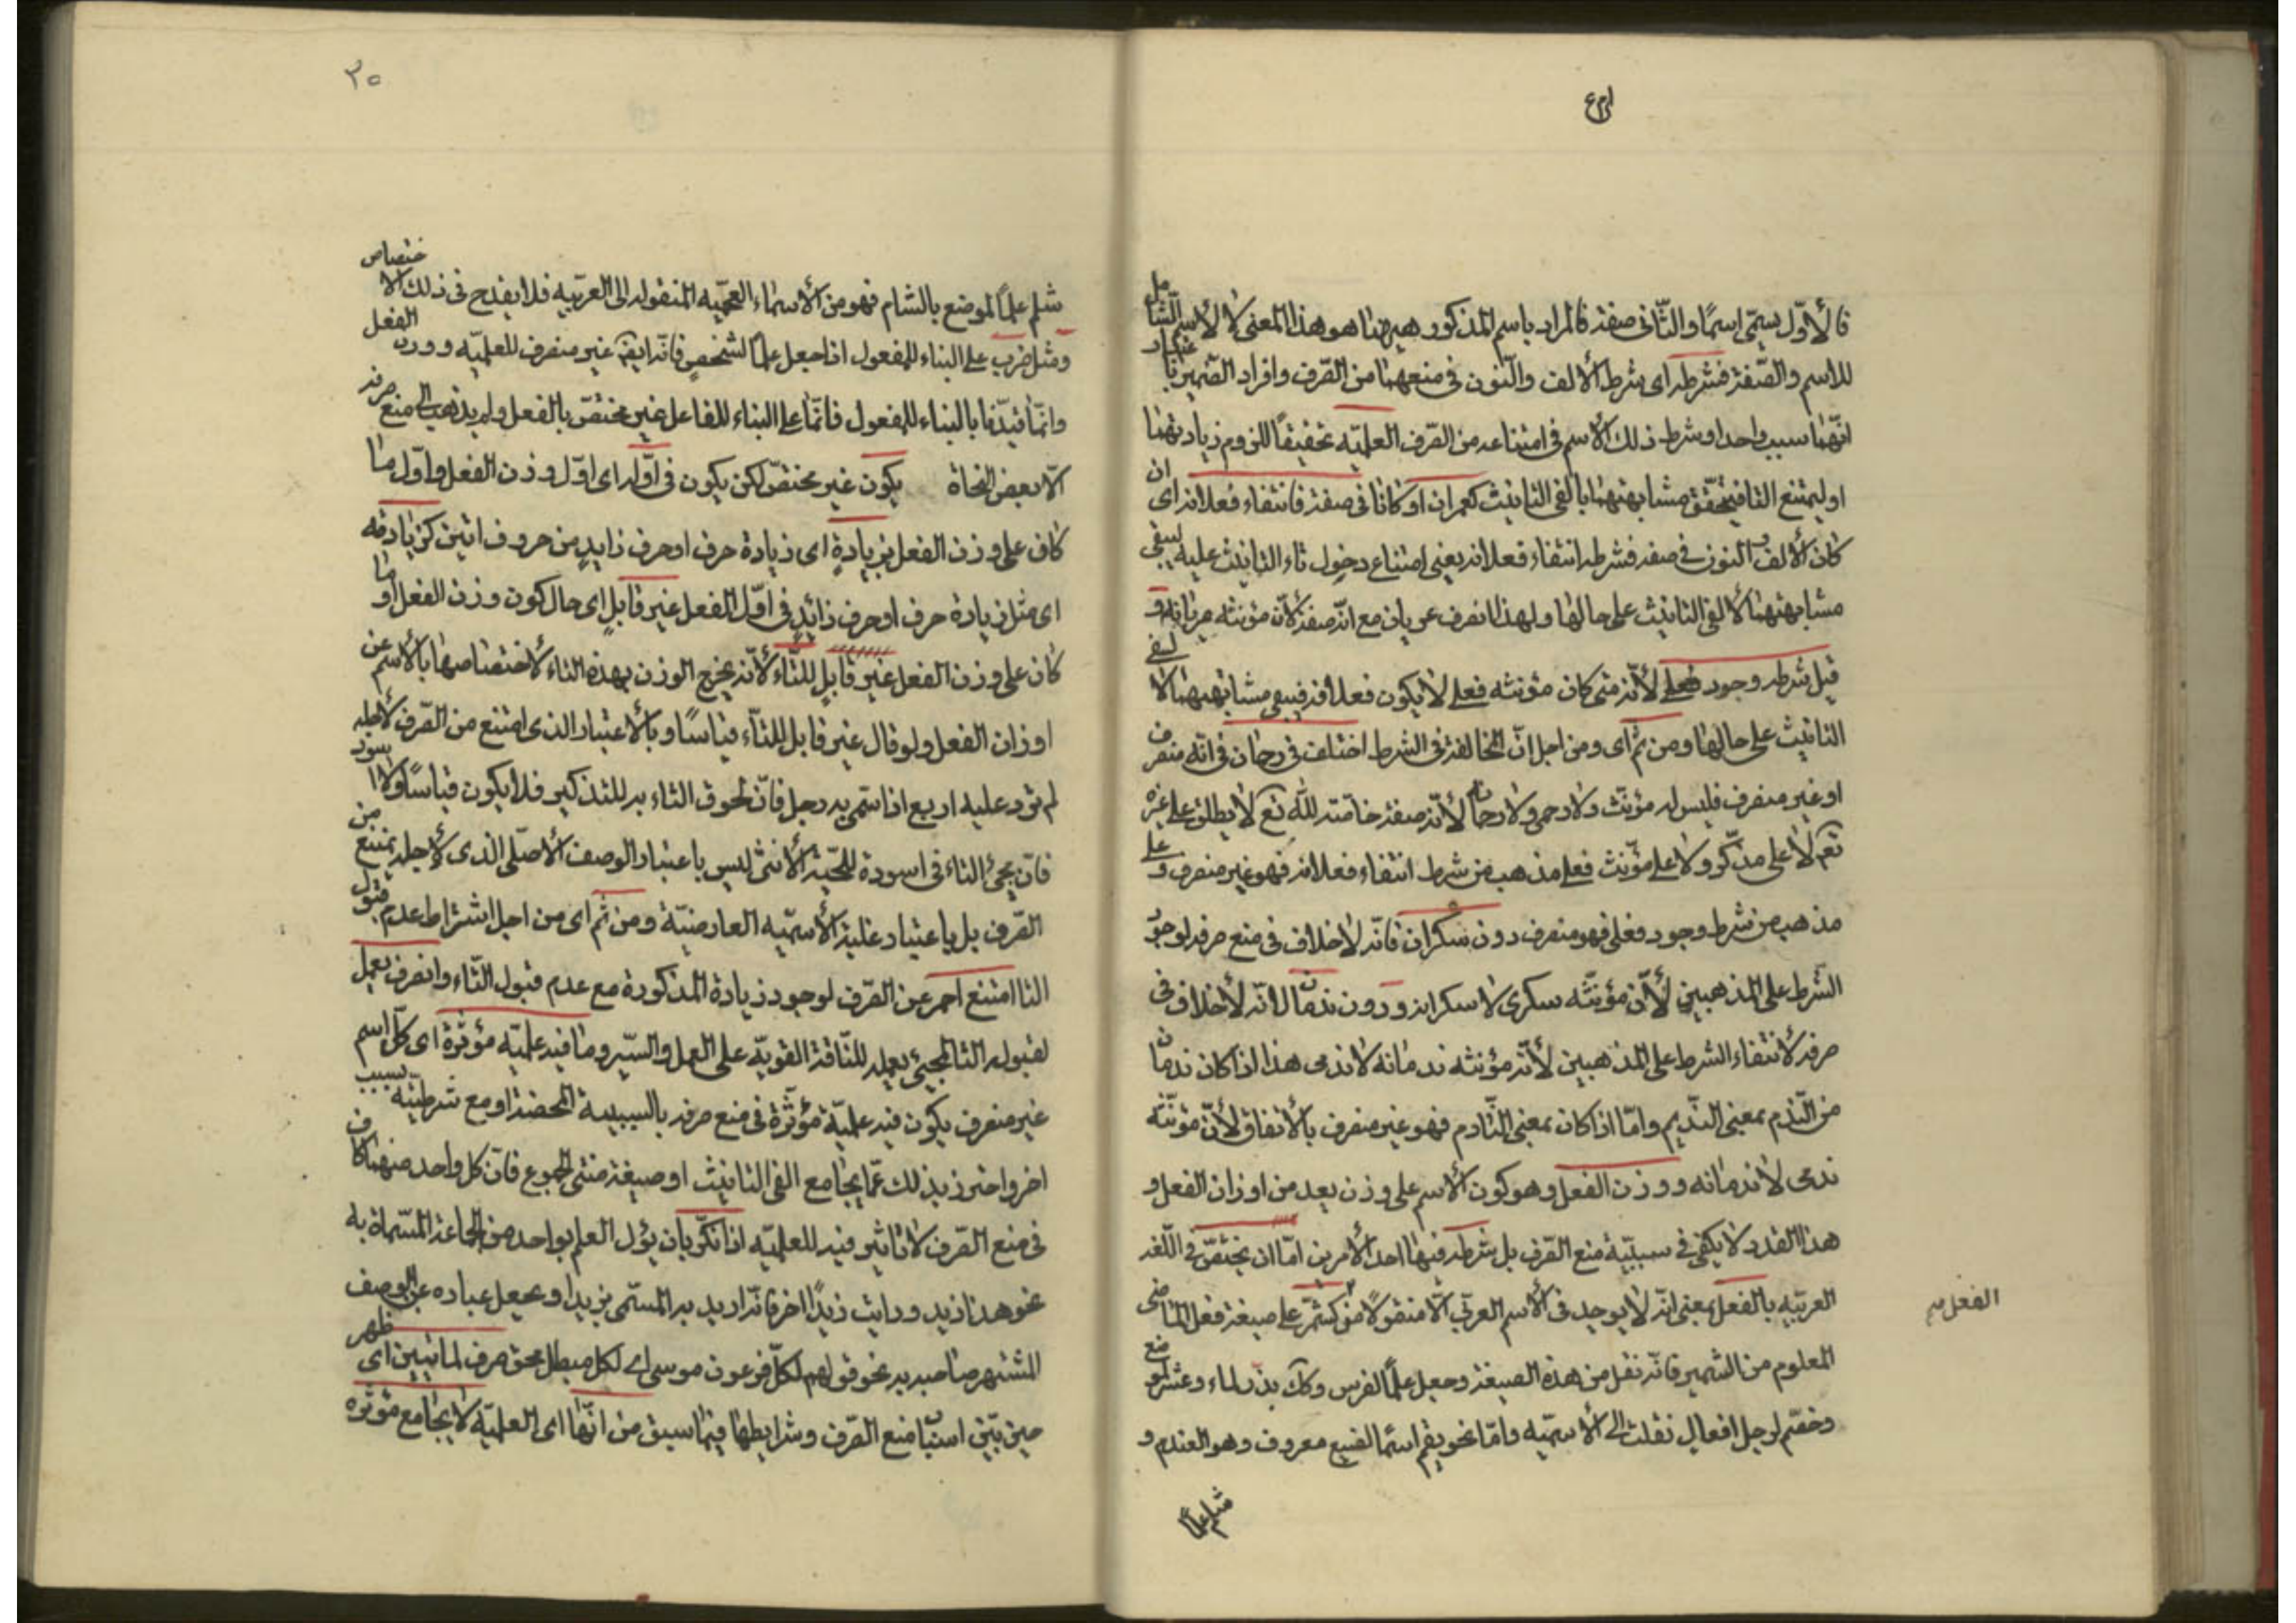 فالأوّل يسمّى اسمًا والثّانى صفة فالمراد باسم المذكور هيهنا هو هذا المعنى لا الاسم الشامل
للاسم والصّفة فشرطه اى شرط الألف والنّون فى منعهما من الصّرف وافراد الضّمير باعتبار
انّهما سبب واحد او شرط ذلك الاسم فى امتناعه من الصّرف العلميّه تحقيقًا للزوم زيادتهما
او ليمتنع التا فيتحقّق مشابهتهما بالفى التانيث كعمران او كانا فى صفة فانتفاء فعلانة اى ان
كان الألف والنون فى صفة فشرطه انتفاء فعلانه يعنى امتناع دخول تاء التانيث عليه ليبقى
مشابهتهما لالفى التانيث على حالها ولهذا انصرف عريان مع انّه صفة لأنّ مؤنثه عريانه و
قيل شرطه وجود فعلى لأنّه متى كان مؤنثه فعلى لا يكون فعلانه فيبقى مشابهتهما لألفى
التانيث على حالها ومن ثمّ اى ومن اجل انّ المخالفة فى الشرط اختلف فى رحمان فى انّه منصرف
او غير منصرف فليس له مؤنّث ولا رحمى ولا رحمانه لأنّه صفة خاصّة لله تع لا يطلق على غيره
تعم لا على مذكّر ولا على مؤنّث فعلى مذهب من شرط انتفاء فعلانه فهو غير منصرف وعلى
مذهب من شرط وجود فعلى فهو منصرف دون سكران فانّه لا خلاف فى منع صرفه لوجود
الشّرط على المذهبين لأنّ مؤنثّه سكرى لا سكرانه ودون ندمان لانّه لا خلاف فى
صرفه لانتفاء الشرط على المذهبين لأنّه مؤنثه ندمانه لا ندمى هذا اذا كان ندمان
من النّدم بمعنى النّديم وامّا اذا كان بمعنى النّادم فهو غير منصرف بالأتفاق لأنّ مؤنّثه
ندمى لا ندمانه ووزن الفعل وهو كون الأسم على وزن يعد من اوزان الفعل و
هذا القدر لا يكفى فى سببيّة منع الصّرف بل شرطه فيها احد الأمرين امّا ان يختصّ فى اللّغه
العربّيه بالفعل بمعنى انّه لا يوجد فى الأسم العربّى الّا منقولًا من كشمّر على صيغة فعل الماضى
الفعل
المعلوم من التشمير فانّه نقل من هذه الصيغة وجعل علمًا لفرس وكك بذّر لماء وعثر لموضع
وخضّم لرجل افعال نقلت الى الأسميّه وامّا نحو بقّم اسمًا لصبغ معروف وهو العندم و
شلم علمًا
٣٥
شلم علمًا لموضع بالشام فهو من الأسماء العجميّه المنقوله الى العربّيه فلا يقدح فى ذلك الاختصاص
ومثل ضرب على البناء للمفعول اذا جعل علمًا لشخص فانّه ايضً غير منصرف للعلميّه ووزن الفعل
وانّما قيّدنا بالبناء للمفعول فانّها على البناء للفاعل غير مختصّ بالفعل ولم يذهب الى منع صرفه
الّا بعض النحاة يكون غير مختصّ لكن يكون فى اوّله اى اوّل وزن الفعل او اوّل ما
كان على وزن الفعل زيادةٍ اى زيادة حرف او حرف زايدٍ من حروف اتين كزيادته
اى مثل زيادة حرف او حرف زائدٍ فى اوّل الفعل غير قابلٍ اى حال كون وزن الفعل او ما
كان على وزن الفعل غير قابلٍ للتّاء لأنّه يخرج الوزن بهذه التاء لأختصاصها بالأسم عن
اوزان الفعل ولو قال غير قابل للتّاء قياسًا وبالأعتبار الذى امتنع من الصّرف لأجله
لم يرد عليه اربع اذا سمّى به رجل فانّ لحوق التاء به للتذكير فلا يكون قياسًا ولا اسود
فانّ مجئ التاء فى اسودة للحيّة الأنثى ليس باعتبار الوصف الأصلّى الذى لأجله يمتنع من
الصّرف بل باعتبار غلبة الأسمّيه العارضيّة ومن ثمّ اى من اجل اشتراط عدم قبول
التا امتنع احمر عن الصّرف لوجود زيادة المذكورة مع عدم قبول التّاء وانصرف يعمل
لقبوله التا لمجيئ يعمله للنّاقة القويّه على العمل والسّير وما فيه علميّه مؤثّرة اى كلّ اسم
غير منصرف يكون فيه علميّة مؤثّرة فى منع صرفه بالسببية المحضة او مع شرطيّته لسبب
اخر واحترز بذلك عمّا يجامع الفى التانيث او صيغة منتهى الجموع فانّ كل واحد منهما كاف
فى منع الصّرف لا تاثير فيه للعلميّه اذا نكّر بان يؤل العلم بواحد من الجماعة المسّماة به
نحو هذا زيد ورايت زيدًا اخر فانّه اريد به المسّمى بزيد او يجعل عباره عن الوصف
المشتهر صاحبه به نحو قولهم لكلّ فرعون موسى اى لكل مبطل محق صرف لما تبيّن اى ظهر
حين بيّن اسباب منع الصّرف وشرايطها فيما سبق من انّها اى العلميّه لا يجامع مؤثّره